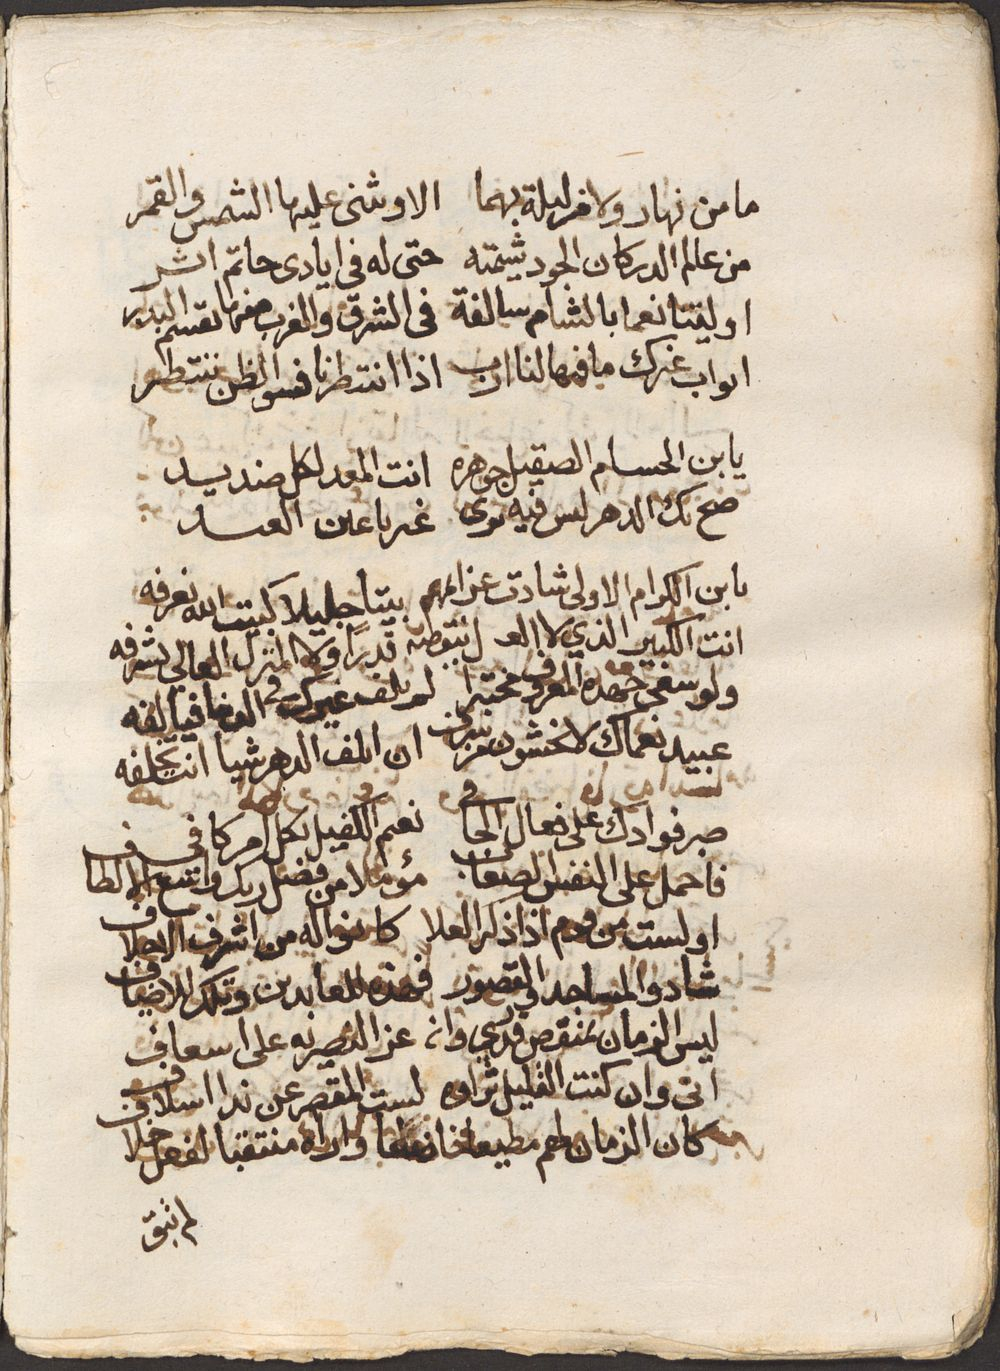 ما من نهار ولا من ليلة بهما الا وثنى عليها الشمس والقمر
من عالم الدر كان الجود شيمته حتى له في ايادى حاتم اثر
اوليتنا نعما بالشام سالفة في الشرق والغرب منها تقسم البدر
ابواب غيرك ما فيها لنا ارب اذا انتظرنا فسو الظن ننتظر
يا بن الحسام الصقيل جوهره انت المعد لكل صنديد
صح بك الدهر ليس فيه يرى غير يا عين
يا بن الكرام الاولى شادت عزايمهم بيتا جليلا كبيت الله نعرفه
انت الكبير الذي لا قدرا ولا المنزل العالي يشرفه
ولو سعى جهده المعروف مختبرا لم يلف غيرك في فيالفه
عبيد نعماك لا نخشون من ان اتلف الدهر شيا انت تخلفه
صبر فوادك على فعال الجافي نعم الكفيل بكل امر كافي
فاحمل على النفس الصعاب مؤملا من فضل ربك واسع الالطاف
اولست من قوم اذا ذكر العلا كانوا له من اشرف الاحلاف
شادوا المساجد والقصور فهذه للعابدين وتلك للاضياف
ليس الزمان بمنقص قدري وان عز النصير به على اسعاف
اني وان كنت القليل ثراوه لست المقصر عن ندا اسلاف
كان الزمان لهم مطيعا خايفا واراه منتقبا لفعل خلا
لم تبق